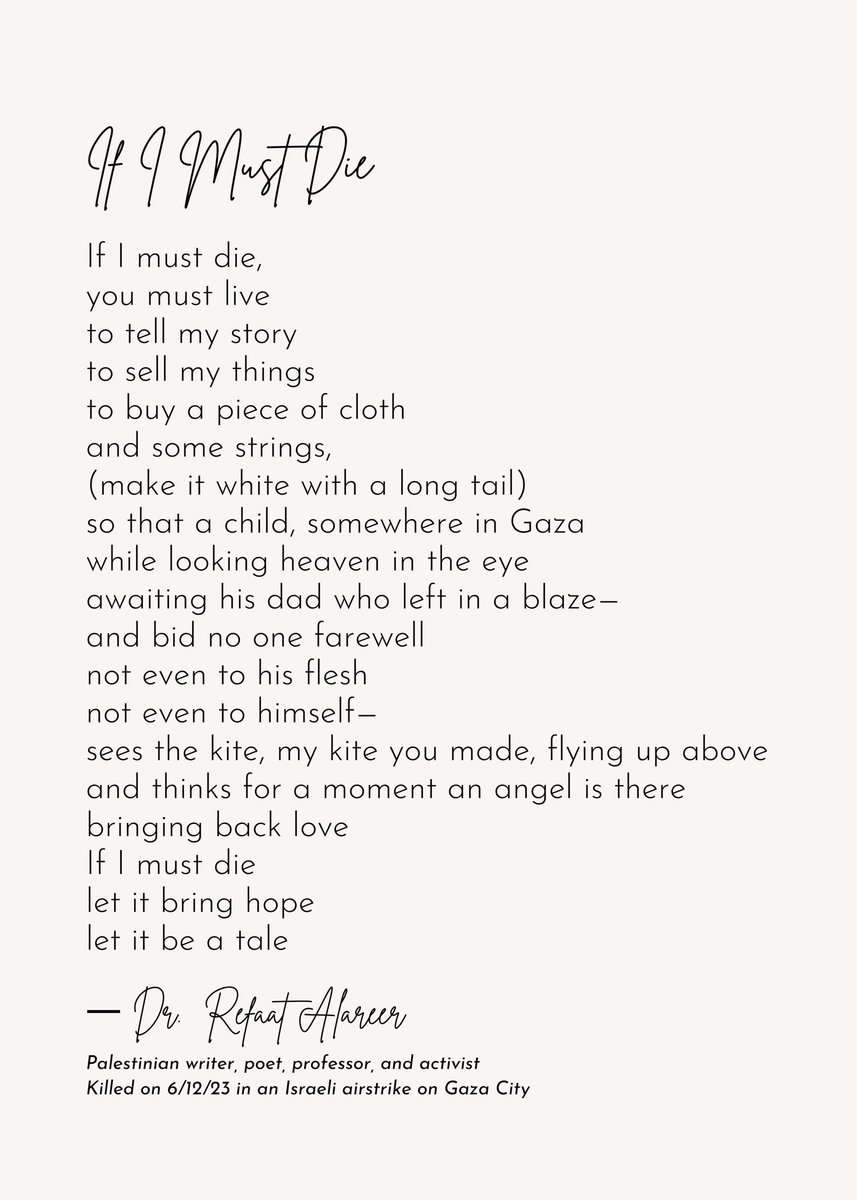 If I Must Die
If I must die,
you must live
to tell my story
to sell my things
to buy a piece of cloth
and some strings,
(make it white with a long tail)
so that a child, somewhere in Gaza
while looking heaven in the eye
awaiting his dad who left in a blaze—
and bid no one farewell
not even to his flesh
not even to himself—
sees the kite, my kite you made, flying up above
and thinks for a moment an angel is there
bringing back love
If I must die
let it bring hope
let it be a tale
— Dr. Refaat Alareer
Palestinian writer, poet, professor, and activist
Killed on 6/12/23 in an Israeli airstrike on Gaza City